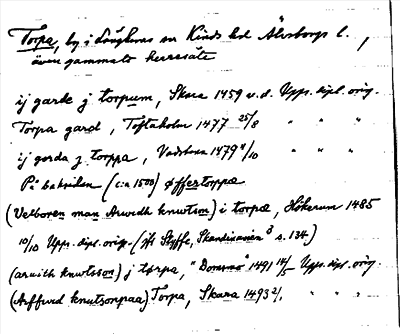 Torpa, by i Länghems sn Kinds hd Älvsborgs l.,
även gammalt herresäte
ij garde j torpum, Skara 1459 u.d. Upps. dipl. orig.
Torpa gard, Toftaholm 1477 25/8 " " "
ij gorda j torppa, Vadstena 1479 4/10 " " "
På baksidan (c:a 1500) øffertorppæ
(Velboren man Arwidh knutson) i torpæ, Hökerum 1485
10/10 Upps. dipl. orig. (jfr Styffe, Skandinavien³ s. 134.)
(arwith knwtsson) j tørpa, "Dommö" 1491 14/5 Upps. dipl. orig.
(Arffwid knutsonpaa) Torpa, Skara 1493 2/1 " " "